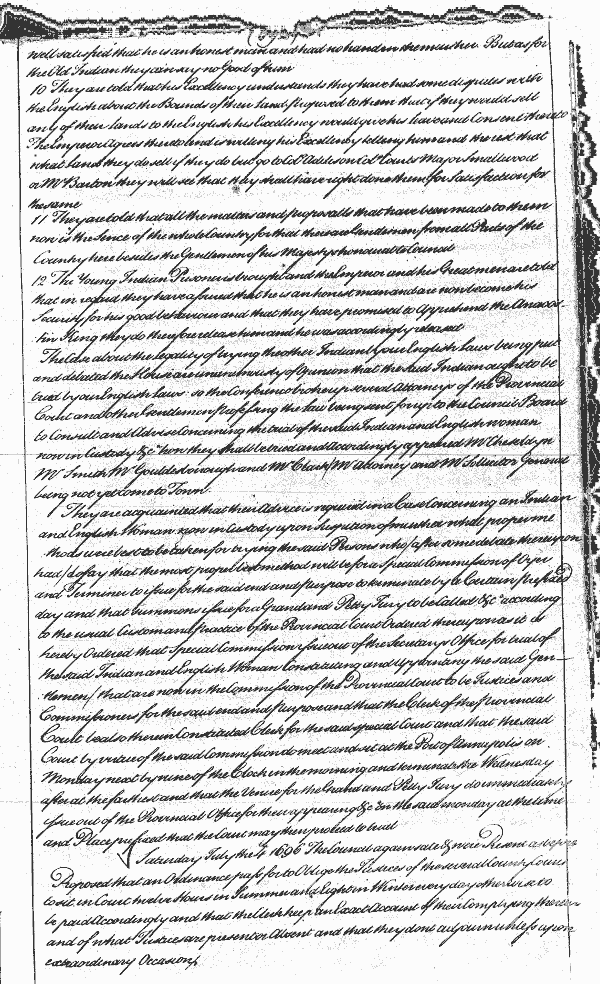 well satisfied that he is an honest man and had no hand in the murther But as for
the Old Indian they can say no Good of him
10 They are told that his Excellency understands they have had some disputes with
the English about the Bounds of their Land proposed to them that if they would sell
any of their Lands to the English his Excellency would give his leave and Consent thereto
The Emperor agrees thereto and is willing his Excellency telling him and the rest that
what Land they do sell if they do but go to Col Addison Col Courts Major Smallwood
or Mr Barton they will see that they shall have right done them for Satisfaction for
the same
11 They are told that all the matters and proposalls that have been made to them
now is the Sence of the whole Country for that there are Gentlemen from all Parts of the
Country here besides the Gentlemen of his Majestys honourable Council
12 The Young Indian Prisoner is brought in and the Emperor and his Great men are told
that in regard they have assured that he is an honest man and are now become his
Security for his good behaviour and that they have promised to Apprehend the Anacos-
tin King they do therefore release him and he was accordingly released
The Case about the legality of trying the other Indian by our English Laws being put
and debated the House are unanimously of Opinion that the said Indian ought to be
tryed by our English Laws so the Conference broke up several Attorneys of the Provincial
Court and other Gentlemen professing the Law being sent for up to the Council Board
to Consult and Advise Concerning the trial of the said Indian and English woman
now in Custody &c how they shall be tried and accordingly appeared Mr Cheseldyn
Mr Smith Mr Gouldesborough and Mr Clark Mr Attorney and Mr Sollicitor General
being not yet come to Town
They are acquainted that their Advice is required in a Case Concerning an Indian
and English Woman now in Custody upon Suspition of murther what proper me
thods were best to be taken for trying the said Persons who after some debate thereupon
had do say that the most proper method will be for a Special Commission of Oyer
and Terminer to issue for the said end and purpose to terminate by a Certain prefixed
day and that Summons issue for a Grand and Petty Jury to be called &c according
to the usual Custom and practice of the Provincial Court Ordered thereupon as it is
hereby Ordered that Special Commission issue out of the Secretarys Office for trial of
the said Indian and English Woman Constituting and Appointing the said Gen-
tlemen that are now in the Commission of the Provincial Court to be Justices and
Commissioners for the said end and purpose and that the Clerk of the Provincial
Court be also therein Constituted Clerk for the said special Court and that the said
Court by virtue of the said Commission do meet and sit at the Port of Annapolis on
Monday next by nine of the Clock in the morning and terminate the Wednesday
after at the farthest and that the Venire for the Grand and Petty Jury do immediately
issue out of the Provincial Office for their appearing &c on the said monday at the time
and Place prefixed that the Court may then proceed to trial
Saturday July the 4 1696 The Council again sate & were Present as before
Proposed that an Ordinance pass for to Oblige the Justices of the several County Courts
to sit in Court twelve Hours in Summer and Eight in Winter every day otherwise to
be paid Accordingly and that the Clerk keep an Exact Account of their Complying therein
and of what Justices are present or Absent and that they dont adjourn unless upon
extraordinary Occasions